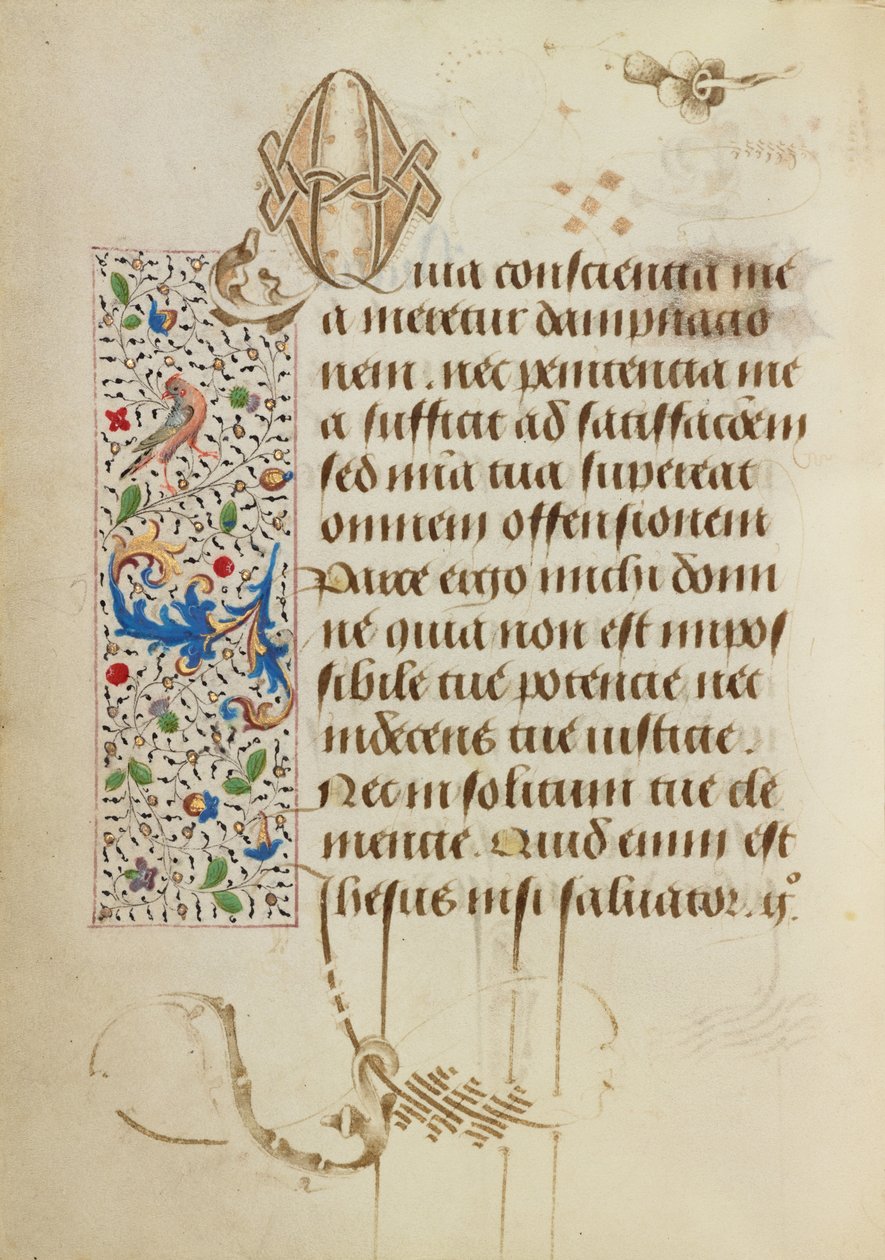 Quia conscientia me
a meretur dampnacio
nem. nec penitencia me
a sufficit ad satisfaccōem
sed mīa tua superat
omnem offensionem
Parce ergo michi domi
ne quia non est impos
sibile tue potencie nec
indecens tue iusticie.
Nec insolitum tue cle
mencie. Quid enim est
Ihesus nisi saluator.